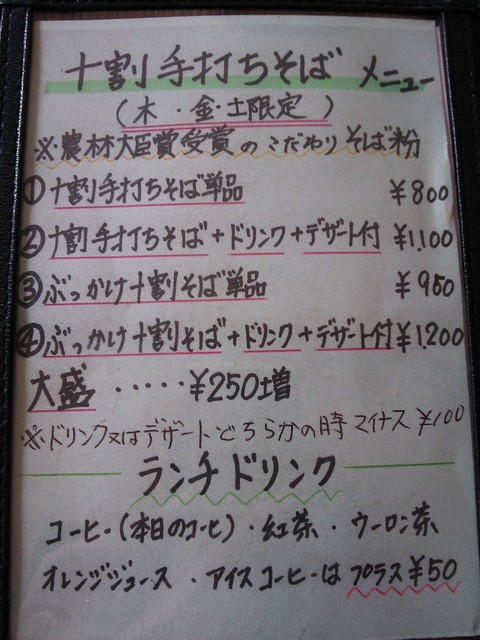 十割手打ちそば メニュー
(木・金・土限定)
※農林大臣賞受賞のこだわりそば粉
①十割手打ちそば単品 ¥800
②十割手打ちそば+ドリンク+デザート付 ¥1,100
③ぶっかけ十割そば単品 ¥950
④ぶっかけ十割そば+ドリンク+デザート付 ¥1,200
大盛 ・・・・・ ¥250増
※ドリンク又はデザートどちらかの時 マイナス ¥100
ランチドリンク
コーヒー(本日のコーヒ)・紅茶・ウーロン茶
オレンジジュース・アイスコーヒーはプラス¥50